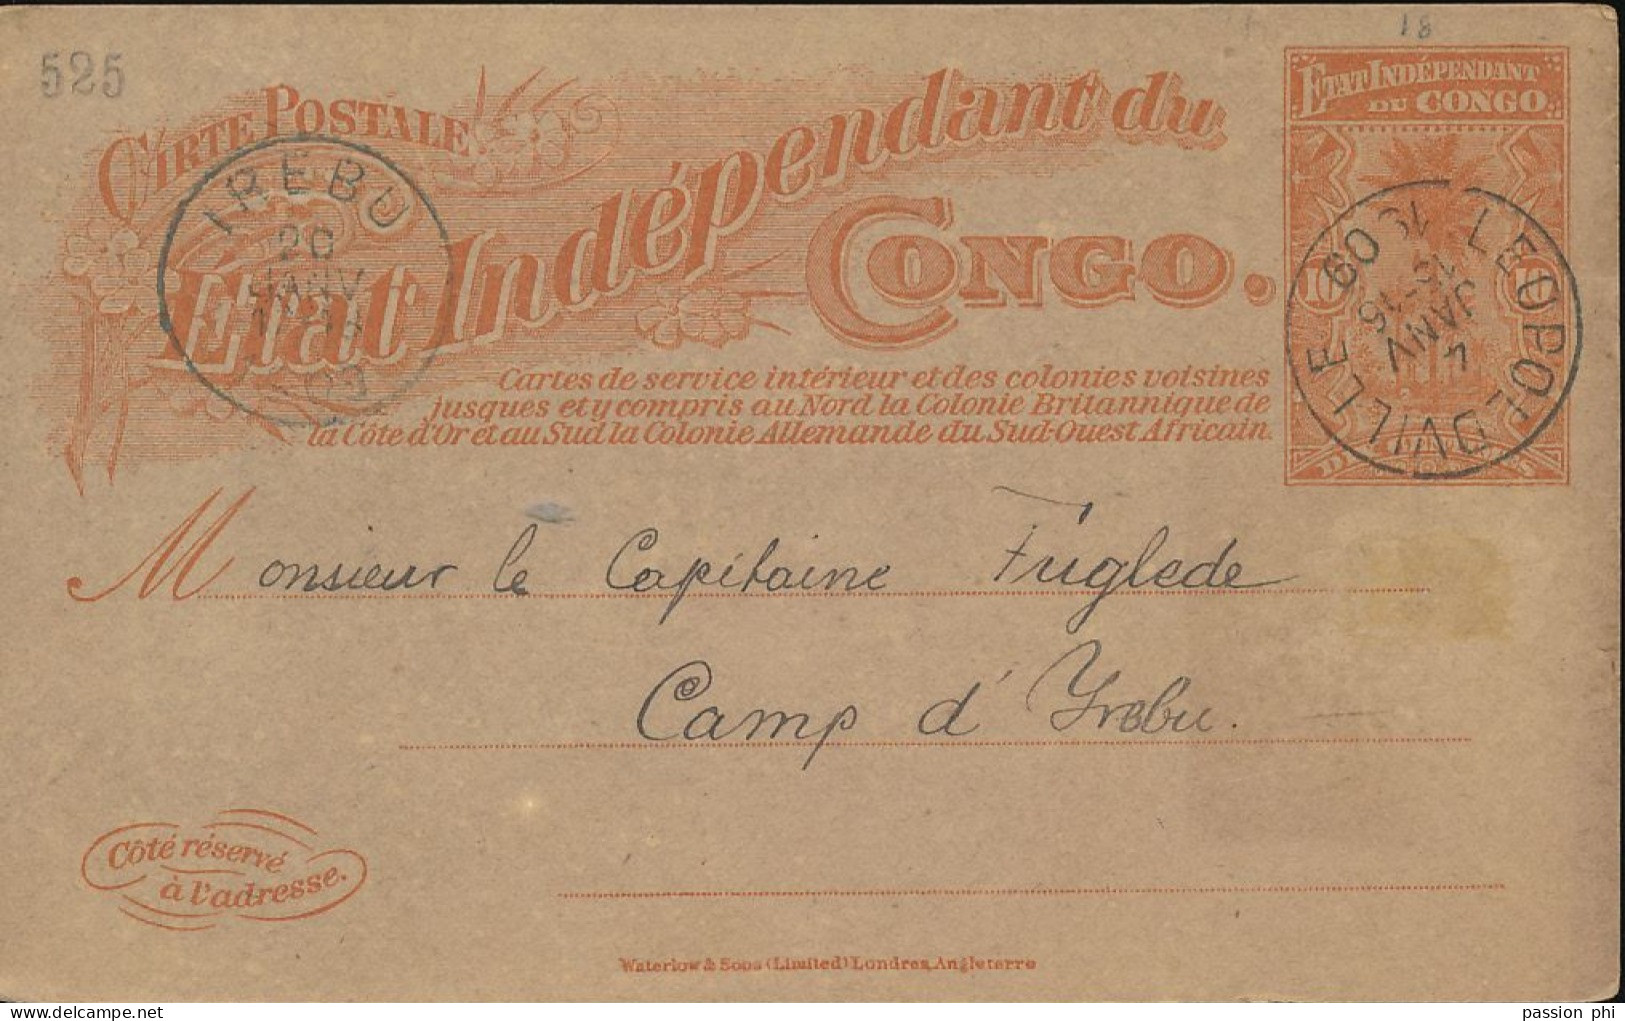 18
525
CARTE POSTALE
État Indépendant du
CONGO.
ÉTAT INDÉPENDANT
DU CONGO.
10 10
IREBU
20
JANV
09
LEOPOLDVILLE
4
JANV
15-16
09
Cartes de service intérieur et des colonies voisines
jusques et y compris au Nord la Colonie Britannique de
la Côte d'Or et au Sud la Colonie Allemande du Sud-Ouest Africain.
Monsieur le Capitaine Fuglede
Camp d'Yrebu.
Côté réservé
à l'adresse.
Waterlow & Sons (Limited) Londres, Angleterre
passion phi